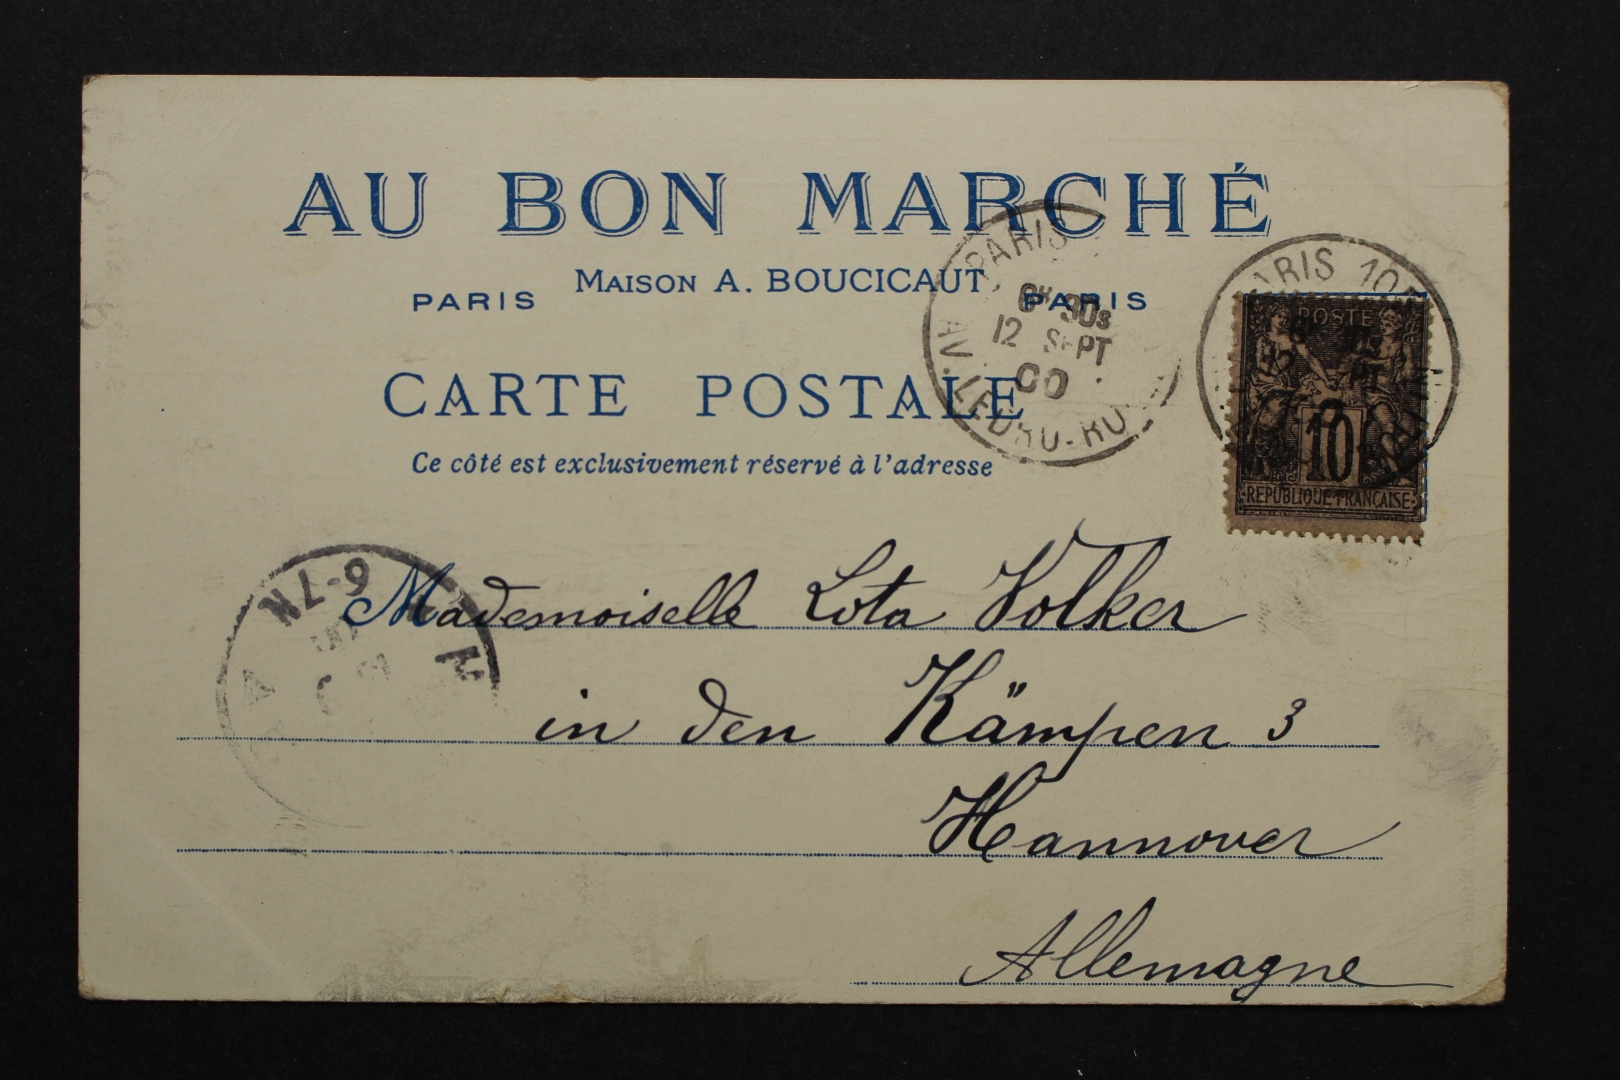 AU BON MARCHÉ
MAISON A. BOUCICAUT
PARIS PARIS
CARTE POSTALE
Ce côté est exclusivement réservé à l'adresse
PARIS
12 SEPT
00
AV. LEDRU-RO
PARIS 10
POSTE
10
REPUBLIQUE FRANÇAISE
6-7N
Mademoiselle Lota Volker
in den Kämpen 3
Hannover
Allemagne